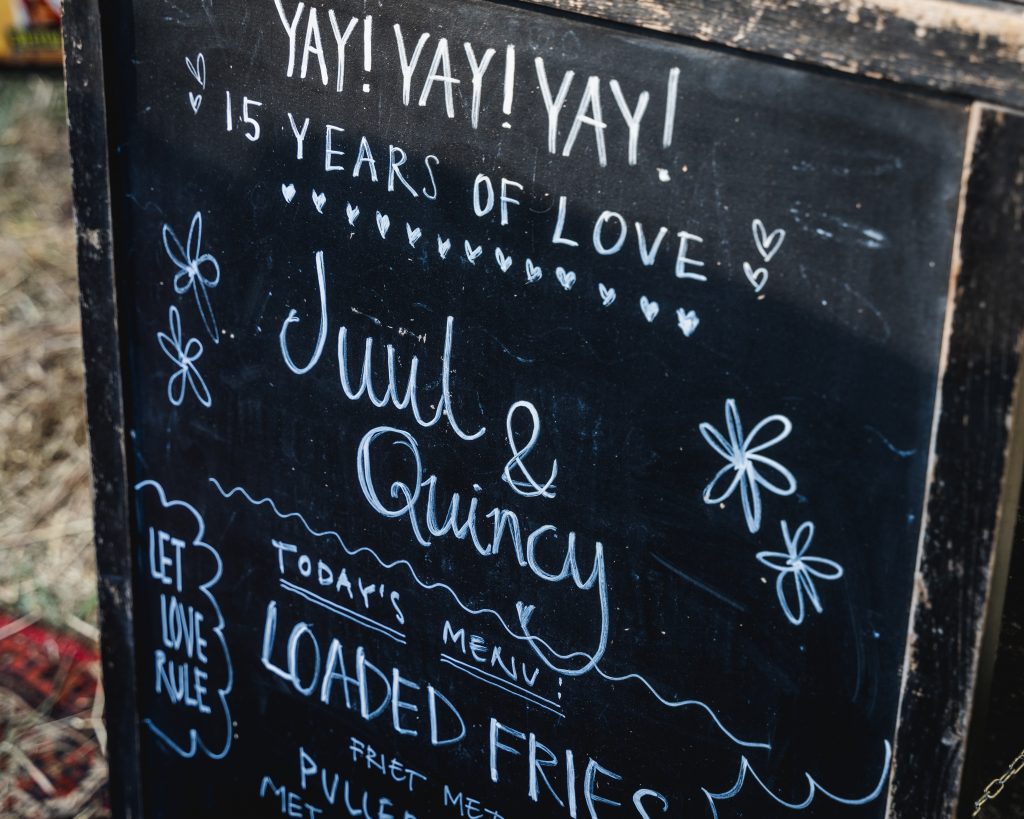 YAY! YAY! YAY!
15 YEARS OF LOVE
Juul
&
Quincy
LET
LOVE
RULE
TODAY'S MENU!
LOADED FRIES
FRIET MET
PULLED
MET